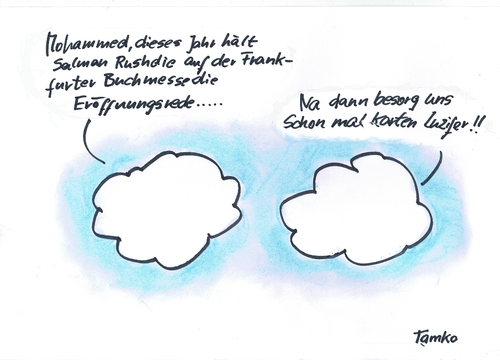 Mohammed, dieses Jahr hält
Salman Rushdie auf der Frank-
furter Buchmesse die
Eröffnungsrede.....
Na dann besorg uns
schon mal Karten Luzifer!!
Tamko